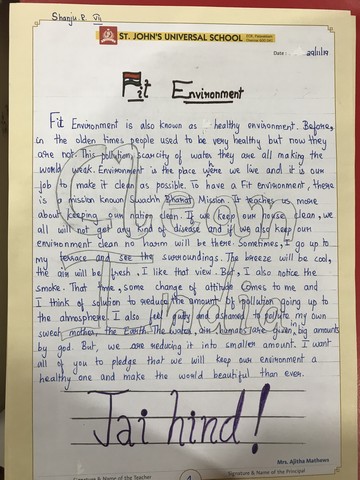 Shanju.R VII
ST. JOHN'S UNIVERSAL SCHOOL
Date : 29/11/19
Fit Environment
Fit Environment is also known as healthy environment. Before,
in the olden times people used to be very healthy but now they
are not. This pollution, scarcity of water they are all making the
world weak. Environment is the place were we live and it is our
job to make it clean as possible. To have a Fit environment, there
is a mission known Swachh Bharat Mission. It teaches us more
about keeping our nation clean. If we keep our house clean, we
all will not get any kind of disease and if we also keep our
environment clean no harm will be there. Sometimes, I go up to
my terrace and see the surroundings. The breeze will be cool,
the air will be fresh, I like that view. But, I also notice the
smoke. That time, some change of attitude comes to me and
I think of solution to reduce the amount of pollution going up to
the atmosphere. I also feel guilty and ashamed to pollute my own
sweat mother, the Earth. The water, air humans are given, big amounts
by god. But, we are reducing it into smaller amount. I want
all of you to pledge that we will keep our environment a
healthy one and make the world beautiful than ever.
Clean
India
Jai hind!
Mrs. Ajitha Mathews
Signature & Name of the Teacher
Signature & Name of the Principal